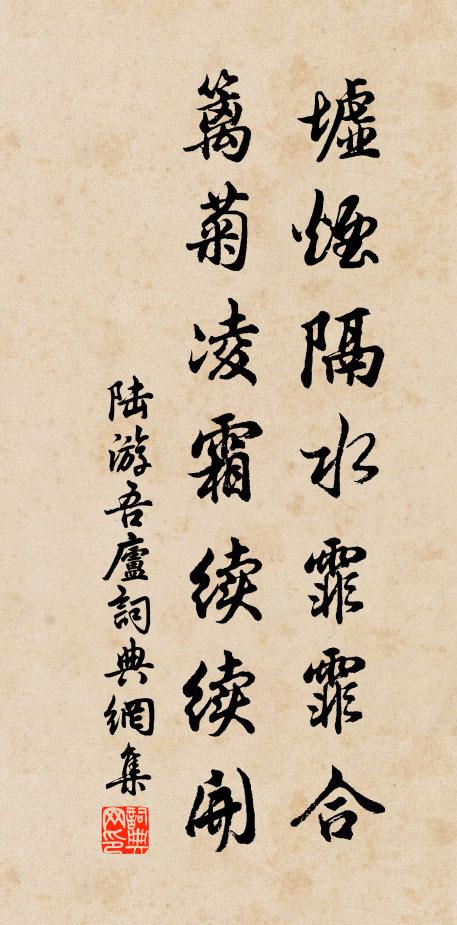 墟煙隔水霏霏合
籬菊凌霜續續開
陸游吾廬詞典網集
詞典网印